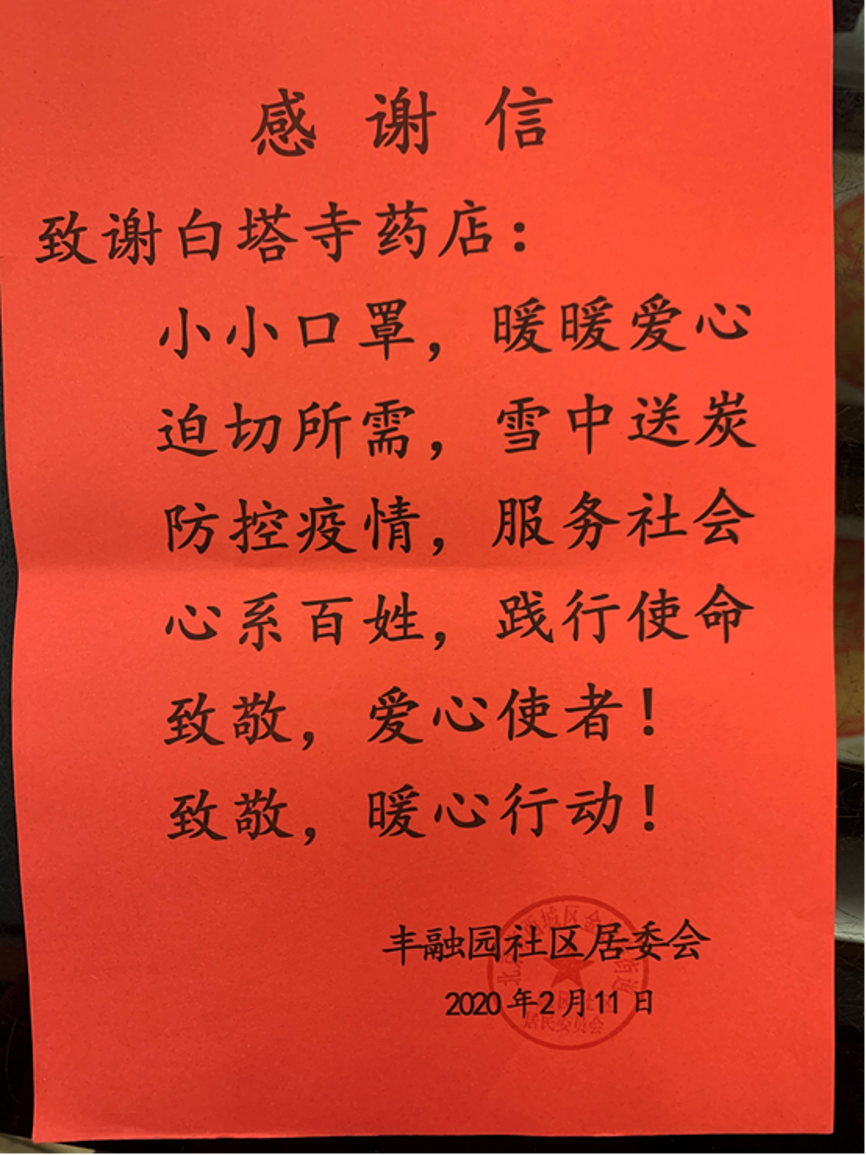 感谢信
致谢白塔寺药店：
小小口罩，暖暖爱心
迫切所需，雪中送炭
防控疫情，服务社会
心系百姓，践行使命
致敬，爱心使者！
致敬，暖心行动！
丰融园社区居委会
2020年2月11日
居民委员会